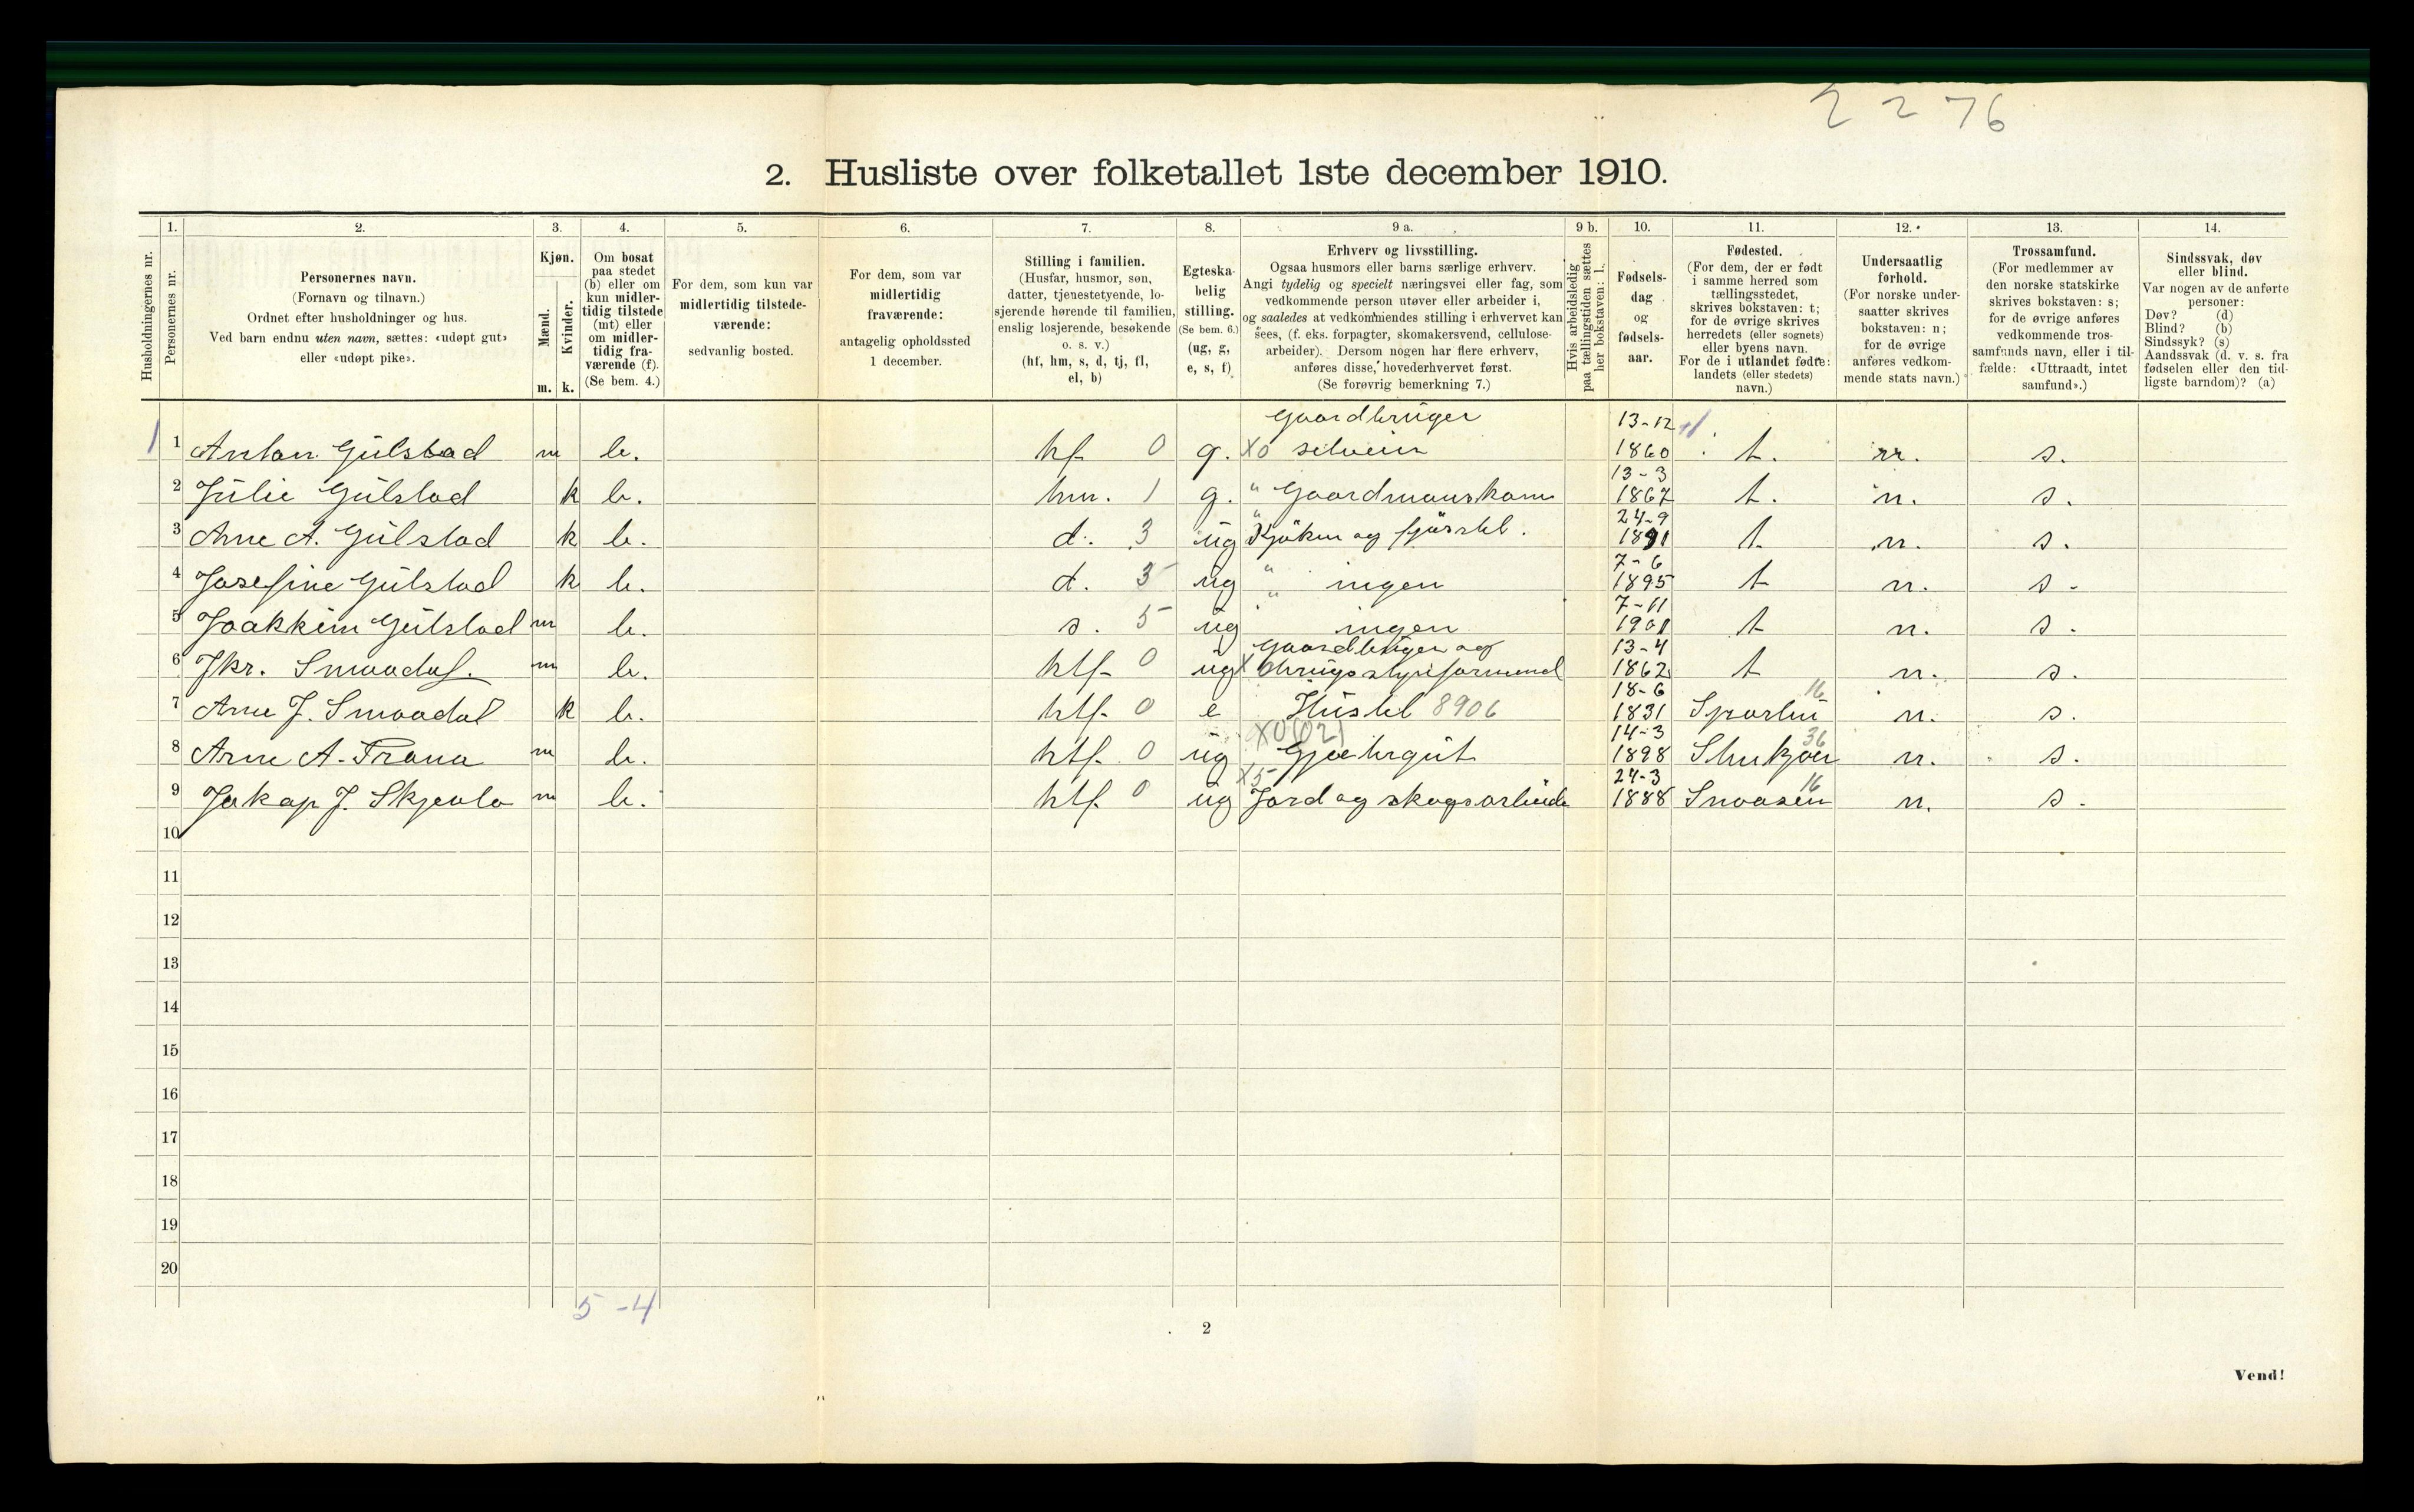 2 2 76
2. Husliste over folketallet 1ste december 1910.
1. 2. 3. 4. 5. 6. 7. 8. 9 a. 9 b. 10. 11. 12. 13. 14.
Husholdningernes nr.
Personernes nr.
Personernes navn.
(Fornavn og tilnavn.)
Ordnet efter husholdninger og hus.
Ved barn endnu uten navn, sættes: «udøpt gut»
eller «udøpt pike».
Kjøn.
Mænd.
Kvinder.
m. k.
Om bosat
paa stedet
(b) eller om
kun midler-
tidig tilstede
(mt) eller
om midler-
tidig fra-
værende (f).
(Se bem. 4.)
For dem, som kun var
midlertidig tilstede-
værende:
sedvanlig bosted.
For dem, som var
midlertidig
fraværende:
antagelig opholdssted
1 december.
Stilling i familien.
(Husfar, husmor, søn,
datter, tjenestetyende, lo-
sjerende hørende til familien,
enslig losjerende, besøkende
o. s. v.)
(hf, hm, s, d, tj, fl,
el, b)
Egteska-
belig
stilling.
(Se bem. 6.)
(ug, g,
e, s, f)
Erhverv og livsstilling.
Ogsaa husmors eller barns særlige erhverv.
Angi tydelig og specielt næringsvei eller fag, som
vedkommende person utøver eller arbeider i,
og saaledes at vedkommendes stilling i erhvervet kan
sees, (f. eks. forpagter, skomakersvend, cellulose-
arbeider). Dersom nogen har flere erhverv,
anføres disse, hovederhvervet først.
(Se forøvrig bemerkning 7.)
Hvis arbeidsledig
paa tællingstiden sættes
her bokstaven: l.
Fødsels-
dag
og
fødsels-
aar.
Fødested.
(For dem, der er født
i samme herred som
tællingsstedet,
skrives bokstaven: t;
for de øvrige skrives
herredets (eller sognets)
eller byens navn.
For de i utlandet fødte:
landets (eller stedets)
navn.)
Undersaatlig
forhold.
(For norske under-
saatter skrives
bokstaven: n;
for de øvrige
anføres vedkom-
mende stats navn.)
Trossamfund.
(For medlemmer av
den norske statskirke
skrives bokstaven: s;
for de øvrige anføres
vedkommende tros-
samfunds navn, eller i til-
fælde: «Uttraadt, intet
samfund».)
Sindssvak, døv
eller blind.
Var nogen av de anførte
personer:
Døv? (d)
Blind? (b)
Sindssyk? (s)
Aandssvak (d. v. s. fra
fødselen eller den tid-
ligste barndom)? (a)
Gaardbruger 13-12
1 1 Anton Gülstad m b. hf 0 g. X0 selveier 1860 t. n. s.
13-3
2 Julie Gülstad k b. hm. 1 g. " Gaardmanskone 1867 t. n. s.
24-9
3 Ane A. Gülstad k b. d. 3 üg Kjöken og fjösstel. 1891 t. n. s.
7-6
4 Josefine Gülstad k b. d. 3 üg " ingen 1895 t n. s.
7-11
5 Joakkim Gülstad m b. s. 5 üg " ingen 1901 t n. s.
Gaardbruger og 13-4
6 Jkr. Smaadal. m b. htf. 0 üg X 1862 t n. s.
18-6 16
7 Ane J. Smaadal k b. htf. 0 e Hüstel 8906 1831 Sparbu n. s.
X0(02) 14-3 36
8 Arne A. Frana m b. htf. 0 üg Gjætergüt 1898 Stenkjær n. s.
X5 24-3 16
9 Jakop J. Skjevlo m b. htf. 0 üg Jord og skogsarbeide 1888 Snaasen n. s.
10
11
12
13
14
15
16
17
18
19
20
5 - 4
2
Vend!